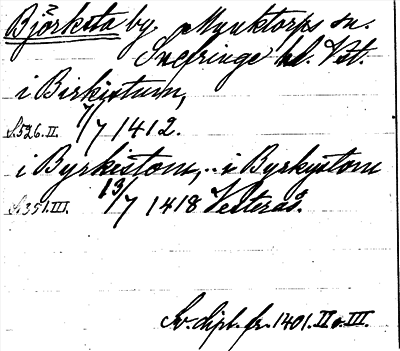 Björksta by Munktorps sn.
Snefringe hd. Vst.
i Birkistum,
S. 526. II. 7/7 1412.
i Byrkistom, .. i Byrkystom
S. 351. III. 13/7 1418 Vesterås.
Sv. dipl. fr. 1401. II o. III.